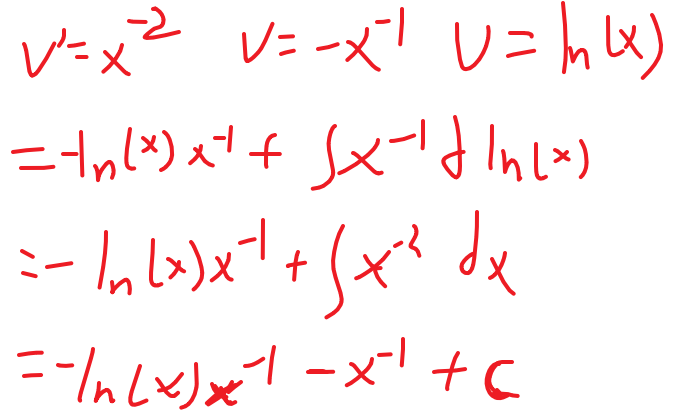 v'=x^{-2} v=-x^{-1} u=ln(x)
=-ln(x)x^{-1}+∫x^{-1}dln(x)
=-ln(x)x^{-1}+∫x^{-2}dx
=-ln(x)x^{-1}-x^{-1}+c